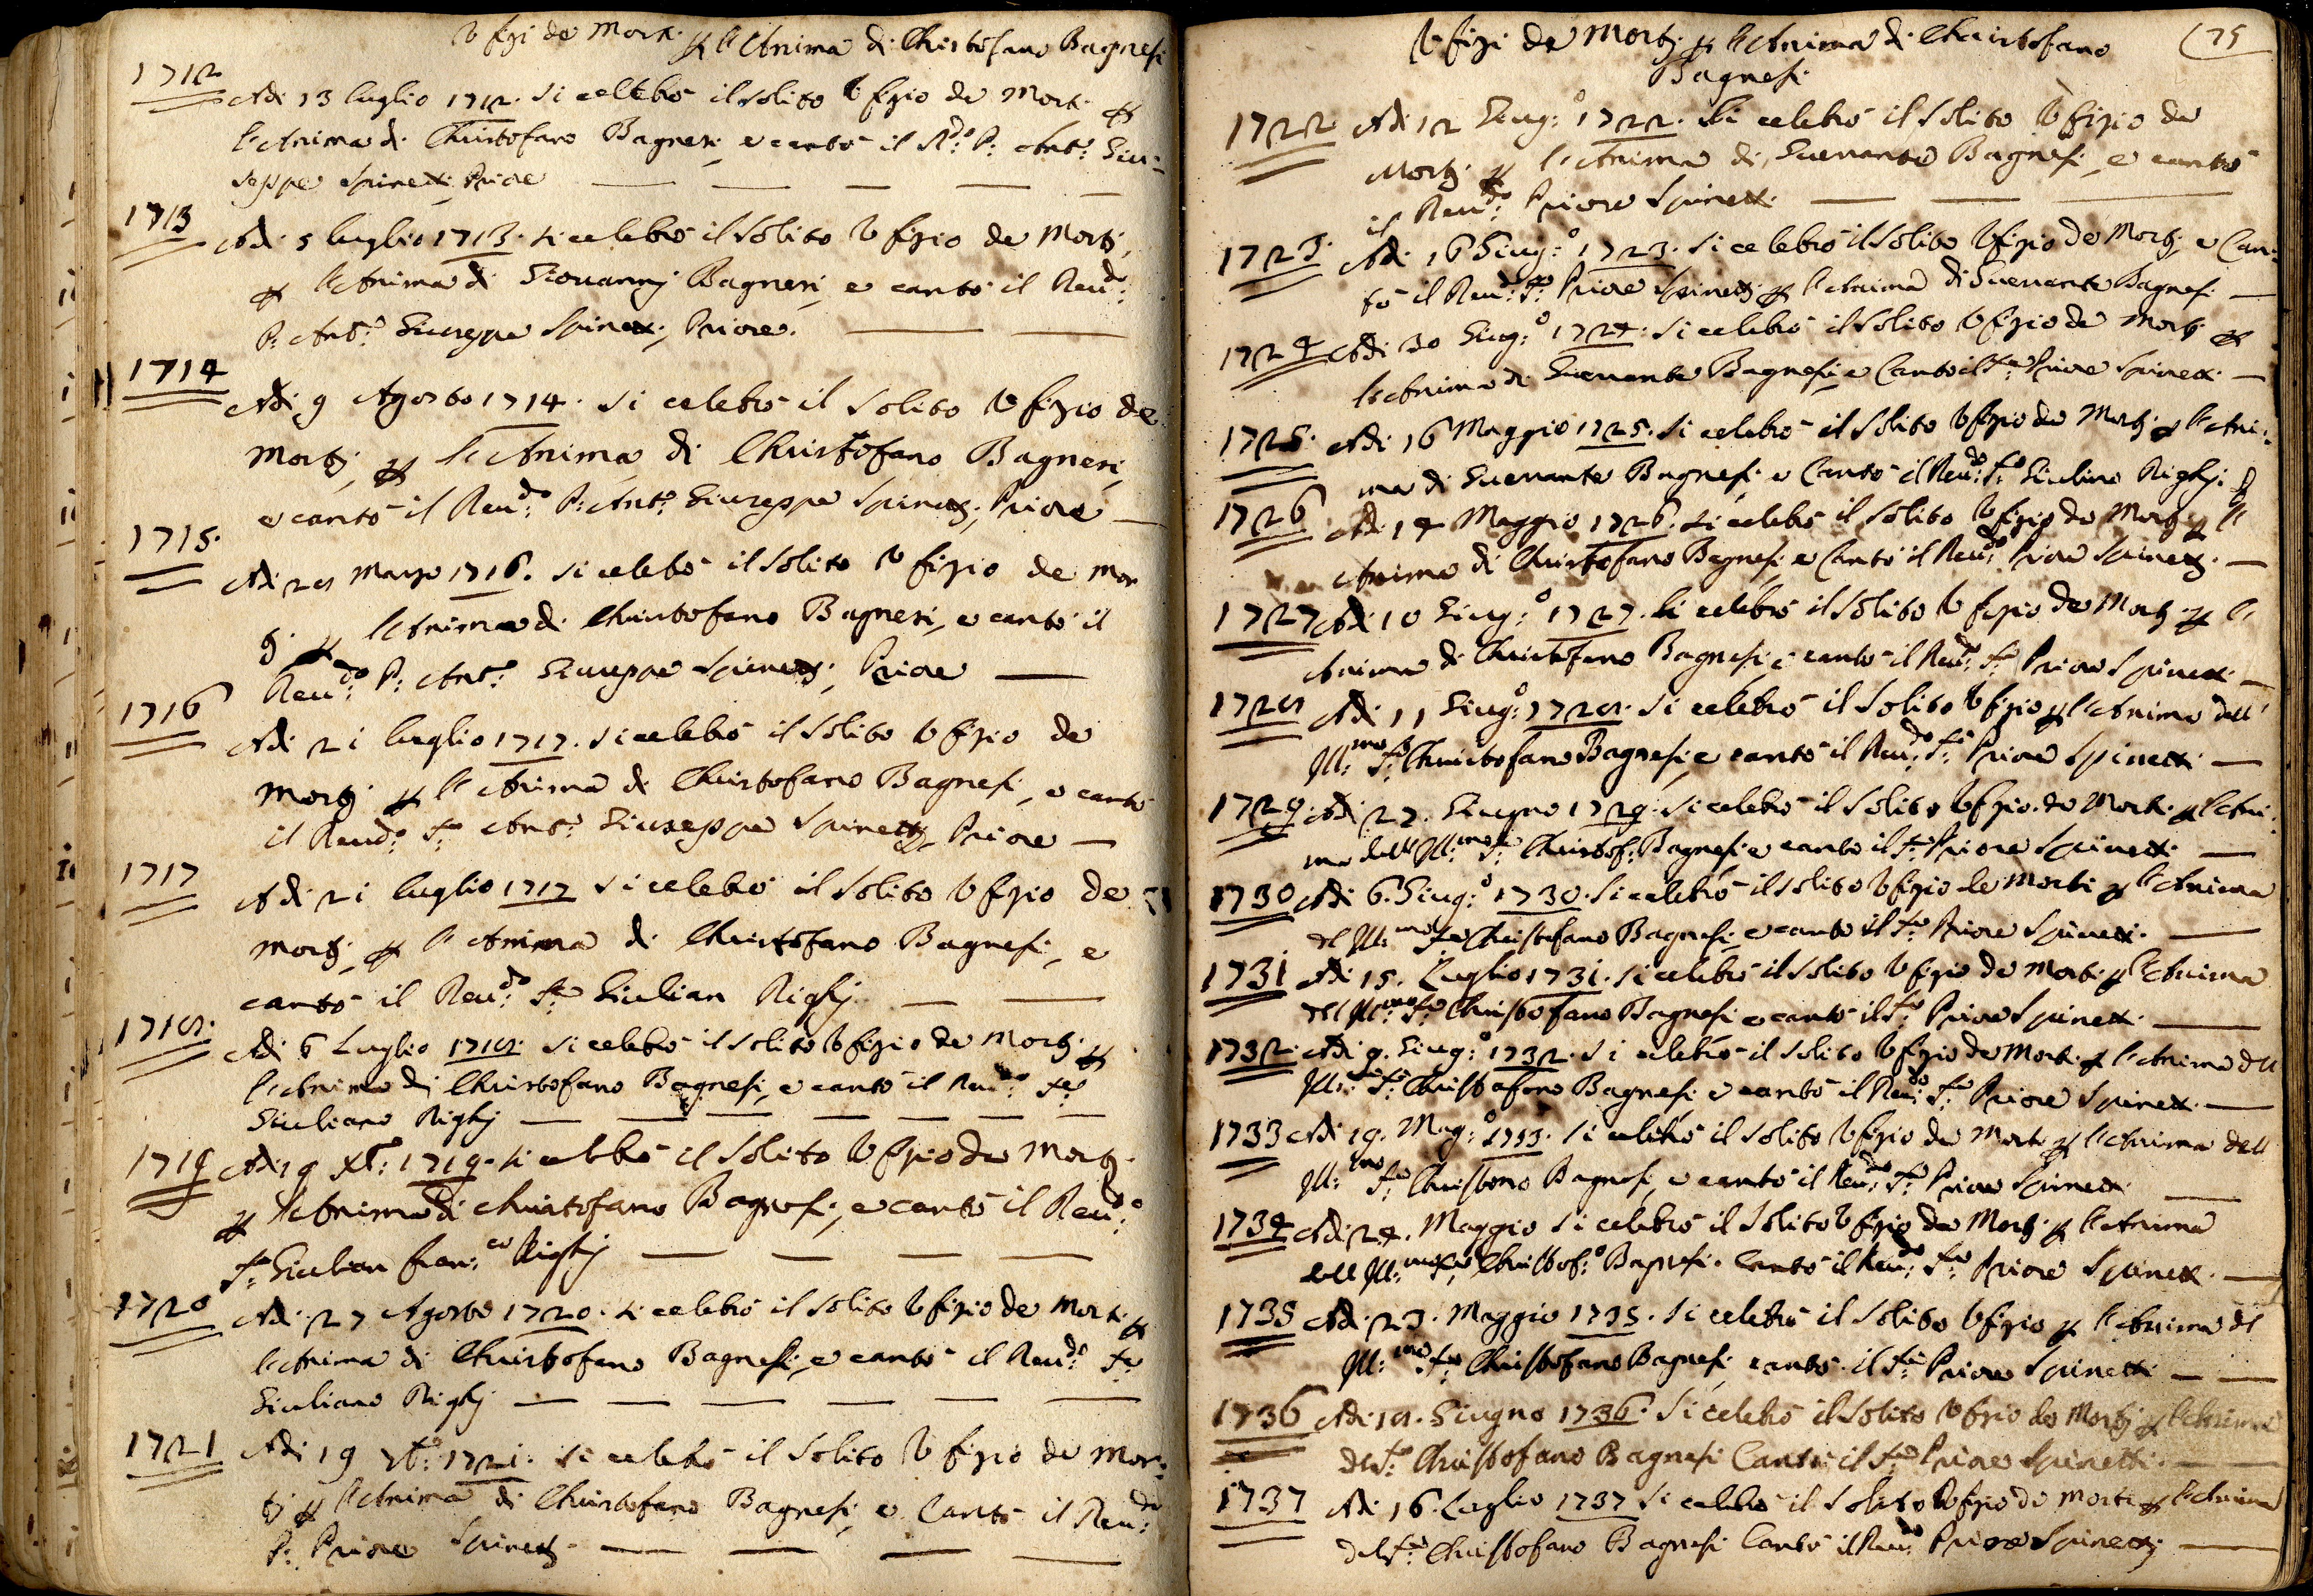 Vfizi de Mort. p l'Anima di Christofano Bagnesi
1712
Adi 13 luglio 1712. si celebrò il solito Vfizio de Mort. p
l'Anima di Christofano Bagnesi, e cantò il R.do P: Ant.o Giu:
seppe Spinetti, Priore
1713
Adi 5 luglio 1713. si celebrò il solito Vfizio de Mortj,
p l'Anima di Giovannj Bagnesi, e cantò il Reu.do
P: Ant.o Giuseppe Spinetti, Priore.
1714
Adi 9 Agosto 1714. si celebrò il solito Vfizio de
Mortj, p l'Anima di Christofano Bagnesi,
e cantò il Reu.do P: Ant.o Giuseppe Spinettj, Priore
1715.
Adi 28 Marzo 1716. si celebrò il solito Vfizio de Mor
tj. p l'Anima di Christofano Bagnesi, e cantò il
Reu.do P: Ant.o Giuseppe Spinettj, Priore
1716
Adi 21 luglio 1717. si celebrò il solito Vfizio de
Mortj. p l'Anima di Christofano Bagnesi, e cantò
il Reud.o S.r Ant.o Giuseppe Spinettj Priore
1717
Adi 21 luglio 1717 si celebrò il solito Vfizio de
Mortj, p l'Anima di Christofano Bagnesi, e
cantò il Reu.do S.r Giulian Righj.
1718.
Adi 6 Luglio 1718. si celebrò il solito Vfizio de Mortj. p
l'Anima di Christofano Bagnesi, e cantò il Reu.do S.r
Giuliano Righj
1719 Adi 9 Xb.e: 1719. si celebrò il solito Vfizio de Mortj.
p l'Anima di Christofano Bagnesi, e cantò il Reu.do
S.r Giulian Fran:co Righj
1720 Adi 27 Agosto 1720. si celebrò il solito Vfizio de Mort. p
l'Anima di Christofano Bagnesi, e cantò il Reu.do S.r
Giuliano Righj
1721 Adi 19 7b.e: 1721. si celebrò il solito Vfizio de Mor:
tj p l'Anima di Christofano Bagnesi, e Cantò il Reu.do
P: Priore Spinettj.
Vfizi de Mortj p l'Anima di Christofano
75
Bagnesi.
1722 Adi 12 Giug:o 1722. si celebrò il solito Vfizio de
Mortj. p l'Anima di Guerrante Bagnesi, e cantò
il Reu.do Priore Spinetti.
1723. Adi 16 Giug:o 1723. si celebrò il solito Vfizio de Mortj, e Can:
tò il Reu.do S.r Priore Spinettj p l'Anima di Guerrante Bagnesi
1724 Adi 30 Giug:o 1724. si celebrò il solito Vfizio de Mortj p
l'Anima di Guerrante Bagnesi, e Cantò il S.r Priore Spinetti.
1725. Adi 16 Maggio 1725. si celebrò il solito Vfizio de Mortj p l'Ani:
ma di Guerrante Bagnesi e Cantò il Reu.do S.r Giuliano Righj.
1726 Adi 14 Maggio 1726. si celebrò il solito Vfizio de Mortj p l'
Anima di Christofano Bagnesi e Cantò il Reu.do Priore Spinettj.
1727 Adi 10 Giug:o 1727. si celebrò il solito Vfizio de Mortj. p l'
Anima di Christofano Bagnesi e cantò il Reu.do S.r Priore Spinetti.
1728 Adi 11 Giug:o 1728. si celebrò il solito Vfizio p l'Anima dell'
Ill:mo S.r Christofano Bagnesi, e cantò il Reu.do S.r Priore Spinetti.
1729. Adi 27. Giugno 1729. si celebrò il solito Vfizio de Mort. p l'Ani:
ma dell Ill:mo S.r Christof: Bagnesi e cantò il S.r Priore Spinetti.
1730 Adi 6. Giug:o 1730. si celebrò il solito Vfizio de Morti p l'Anima
del Ill:mo S.r Christofano Bagnesi, e cantò il S.r Priore Spinetti.
1731 Adi 15. Luglio 1731. si celebrò il solito Vfizio de Morti p l'Anima
dell Ill:mo S.r Christofano Bagnesi e cantò il S.r Priore Spinetti.
1732. Adi 9. Giug:o 1732. si celebrò il solito Vfizio de Mort. p l'Anima dell
Ill:mo S.r Christofano Bagnesi e cantò il Reu.do S.r Priore Spinetti.
1733 Adi 19. Mag:o 1733. si celebrò il solito Vfizio de Mort. p l'Anima dell
Ill:mo S.r Christono Bagnesi, e cantò il Reu.do S.r Priore Spinetti.
1734 Adi 24. Maggio si celebrò il solito Vfizio de Mortj. p l'Anima
dell Ill:mo S.r Christof:o Bagnesi. Cantò il Reu.do S.r Priore Spinetti.
1735 Adi 23. Maggio 1735. si celebrò il solito Vfizio p l'Anima del
Ill:mo S.r Christofano Bagnesi, cantò il S.r Priore Spinetti
1736 Adi 18. Giugno 1736. si celebrò il solito Vfizio de Mortj p l'Anima
del S.r Christofano Bagnesi Cantò il S.r Priore Spinetti.
1737 Adi 16. Luglio 1737 si celebrò il solito Vfizio de Morti p l'Anima
del S.r Christofano Bagnesi Cantò il Reu.do Priore Spinettj